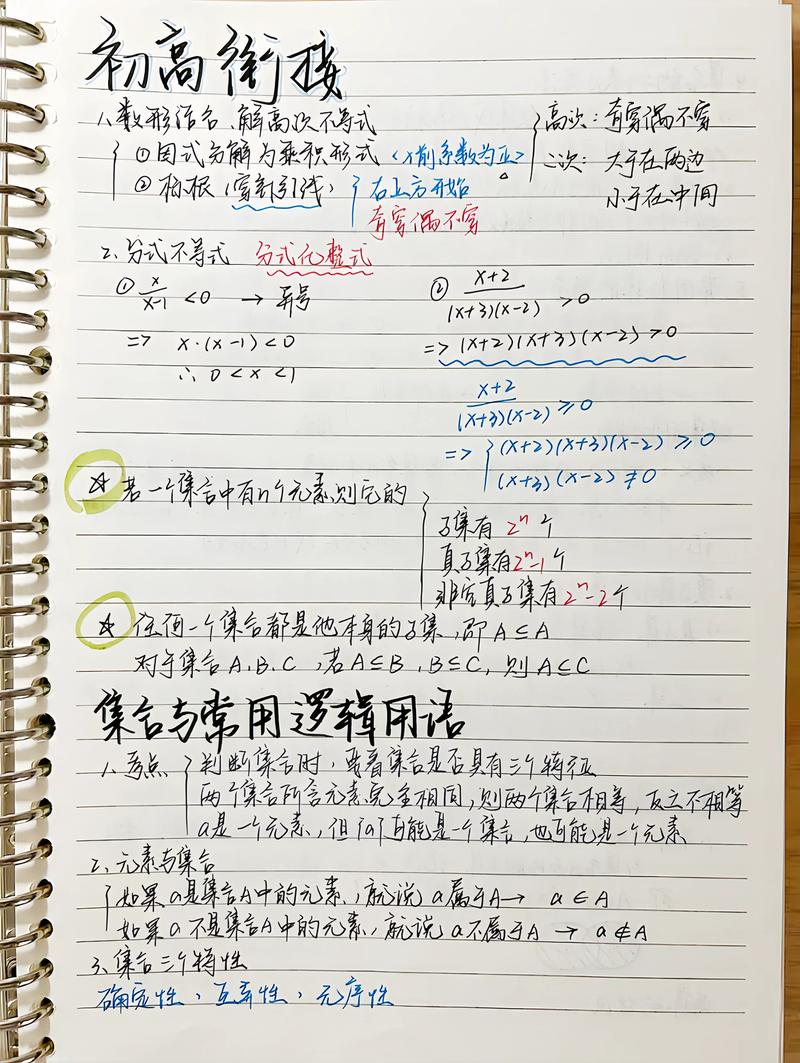 初高衔接
1、数形结合、解高次不等式
① 因式分解为乘积形式 (x前系数为正)
② 标根 (穿针引线) 右上方开始
奇穿偶不穿
高次: 奇穿偶不穿
二次: 大于在两边
小于在中间
2、分式不等式 分式化整式
① x/(x-1) <0 → 异号
=> x·(x-1)<0
∴ 0<x<1
② (x+2)/((x+3)(x-2)) >0
=> (x+2)(x+3)(x-2)>0
(x+2)/((x+3)(x-2)) ≥0
=> (x+2)(x+3)(x-2) ≥0
(x+3)(x-2) ≠0
☆ 若一个集合中有n个元素,则它的
子集有 2ⁿ 个
真子集有2ⁿ-1个
非空真子集有2ⁿ-2个
☆ 任何一个集合都是他本身的子集,即 A⊆A
对于集合A、B、C,若A⊆B,B⊆C,则A⊆C
集合与常用逻辑用语
1、考点 判断集合时,要看集合是否具有三个特征
两个集合所含元素完全相同,则两个集合相等,反之不相等
a是一个元素,但{a}可能是一个集合,也可能是一个元素
2、元素与集合
如果a是集合A中的元素,就说a属于A→ a∈A
如果a不是集合A中的元素,就说a不属于A → a∉A
3、集合三个特性
确定性、互异性、无序性